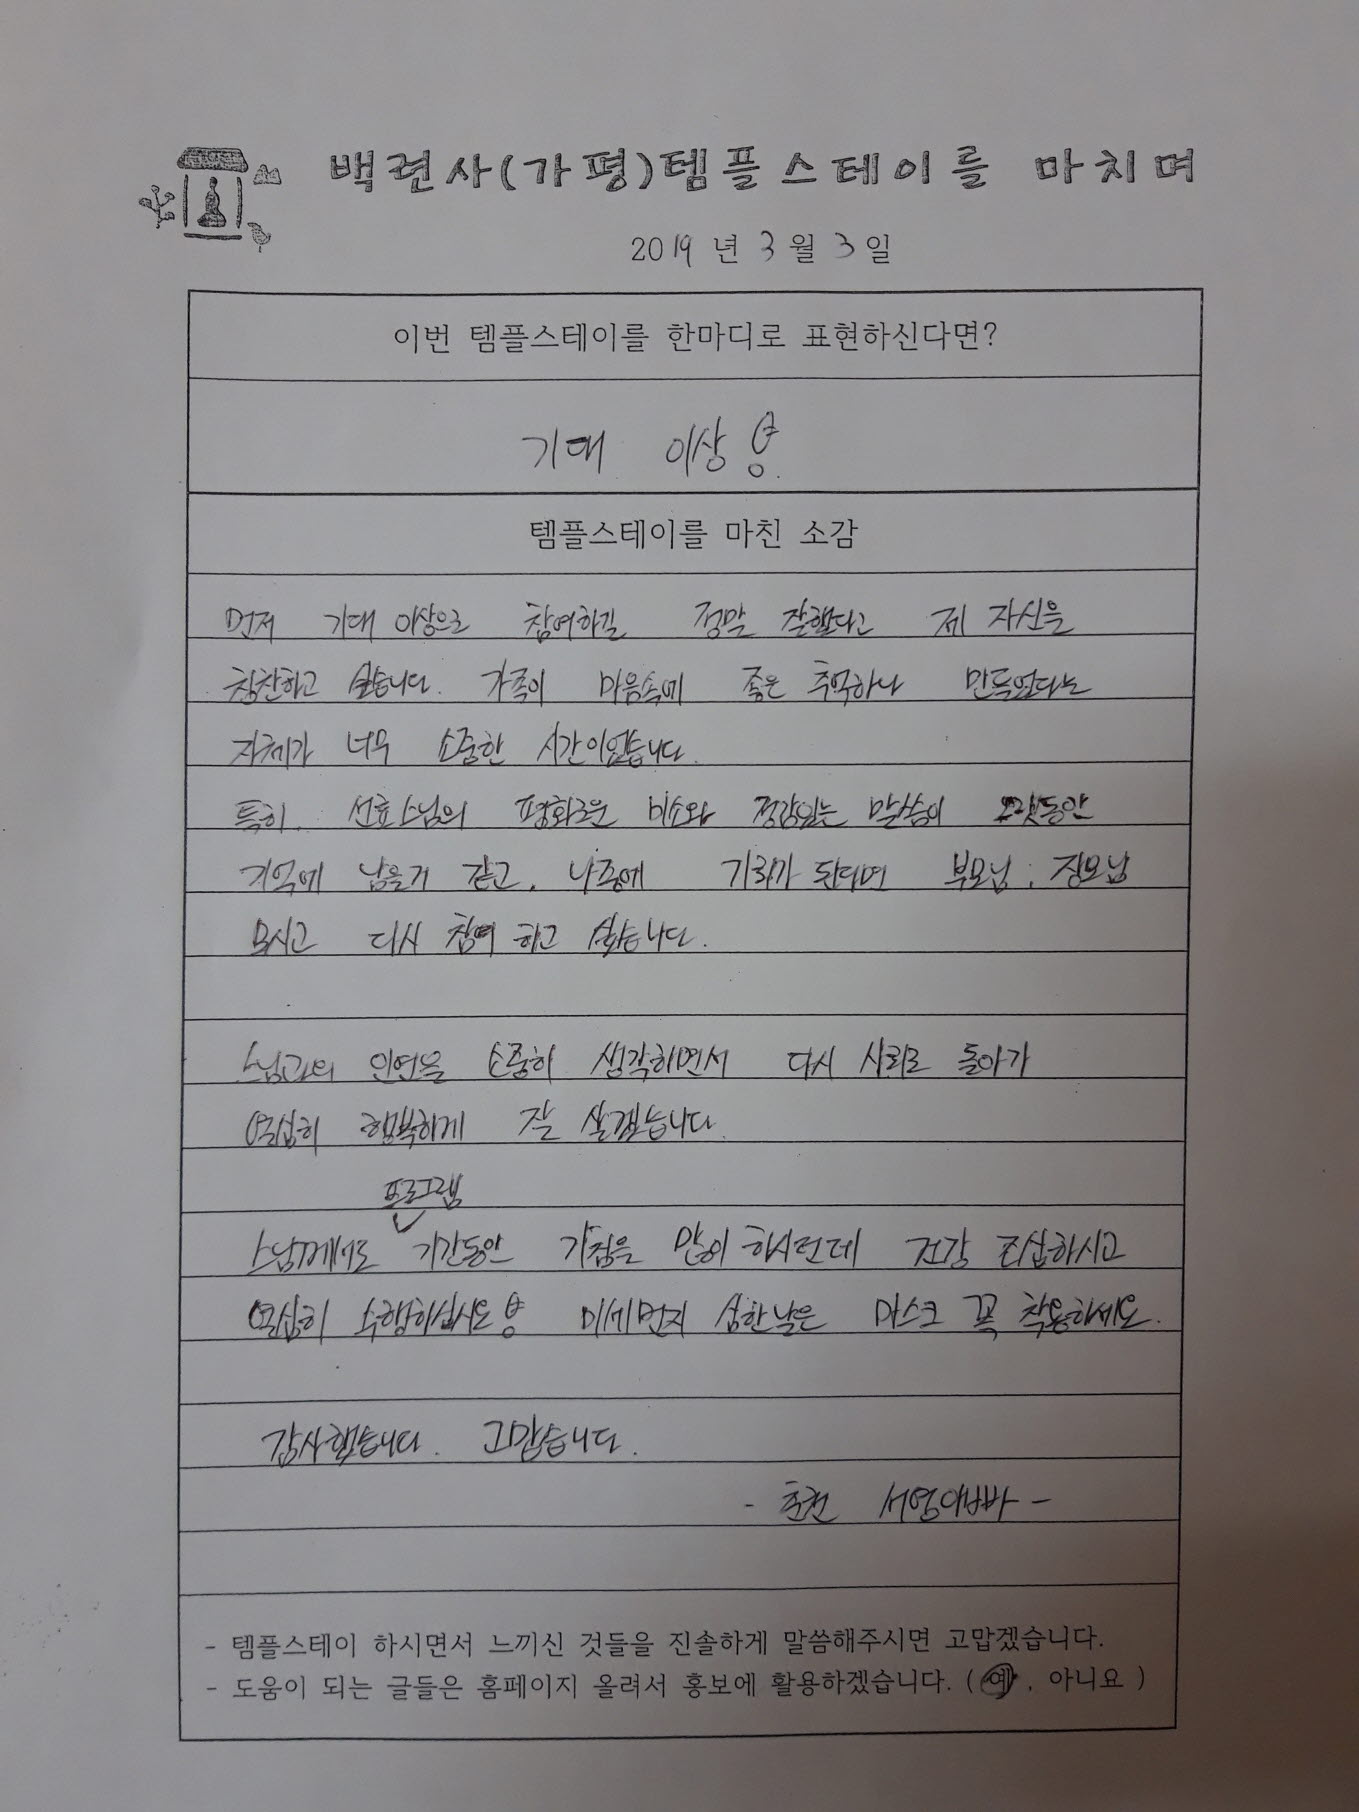 백련사(가평)템플스테이를 마치며
2019 년 3 월 3 일
이번 템플스테이를 한마디로 표현하신다면?
기대 이상
템플스테이를 마친 소감
먼저 기대 이상으로 참여하길 정말 잘했다고 제 자신을
칭찬하고 싶습니다. 가족이 마음속에 좋은 추억하나 만들었다는
자체가 너무 소중한 시간이었습니다.
특히. 선효스님의 평화로운 미소와 정감있는 말씀이 오랫동안
기억에 남을거 같고. 나중에 기회가 된다면 부모님. 장모님
모시고 다시 참여 하고 싶습니다.
스님과의 인연을 소중히 생각하면서 다시 사회로 돌아가
열심히 행복하게 잘 살겠습니다.
프로그램
스님께서도 기간동안 기침을 많이 하시던데 건강 조심하시고
열심히 수행하십시오 미세먼지 심한날은 마스크 꼭 착용하세요.
감사했습니다. 고맙습니다.
- 춘천 서영아빠 -
- 템플스테이 하시면서 느끼신 것들을 진솔하게 말씀해주시면 고맙겠습니다.
- 도움이 되는 글들은 홈페이지 올려서 홍보에 활용하겠습니다. ( 예 . 아니요 )